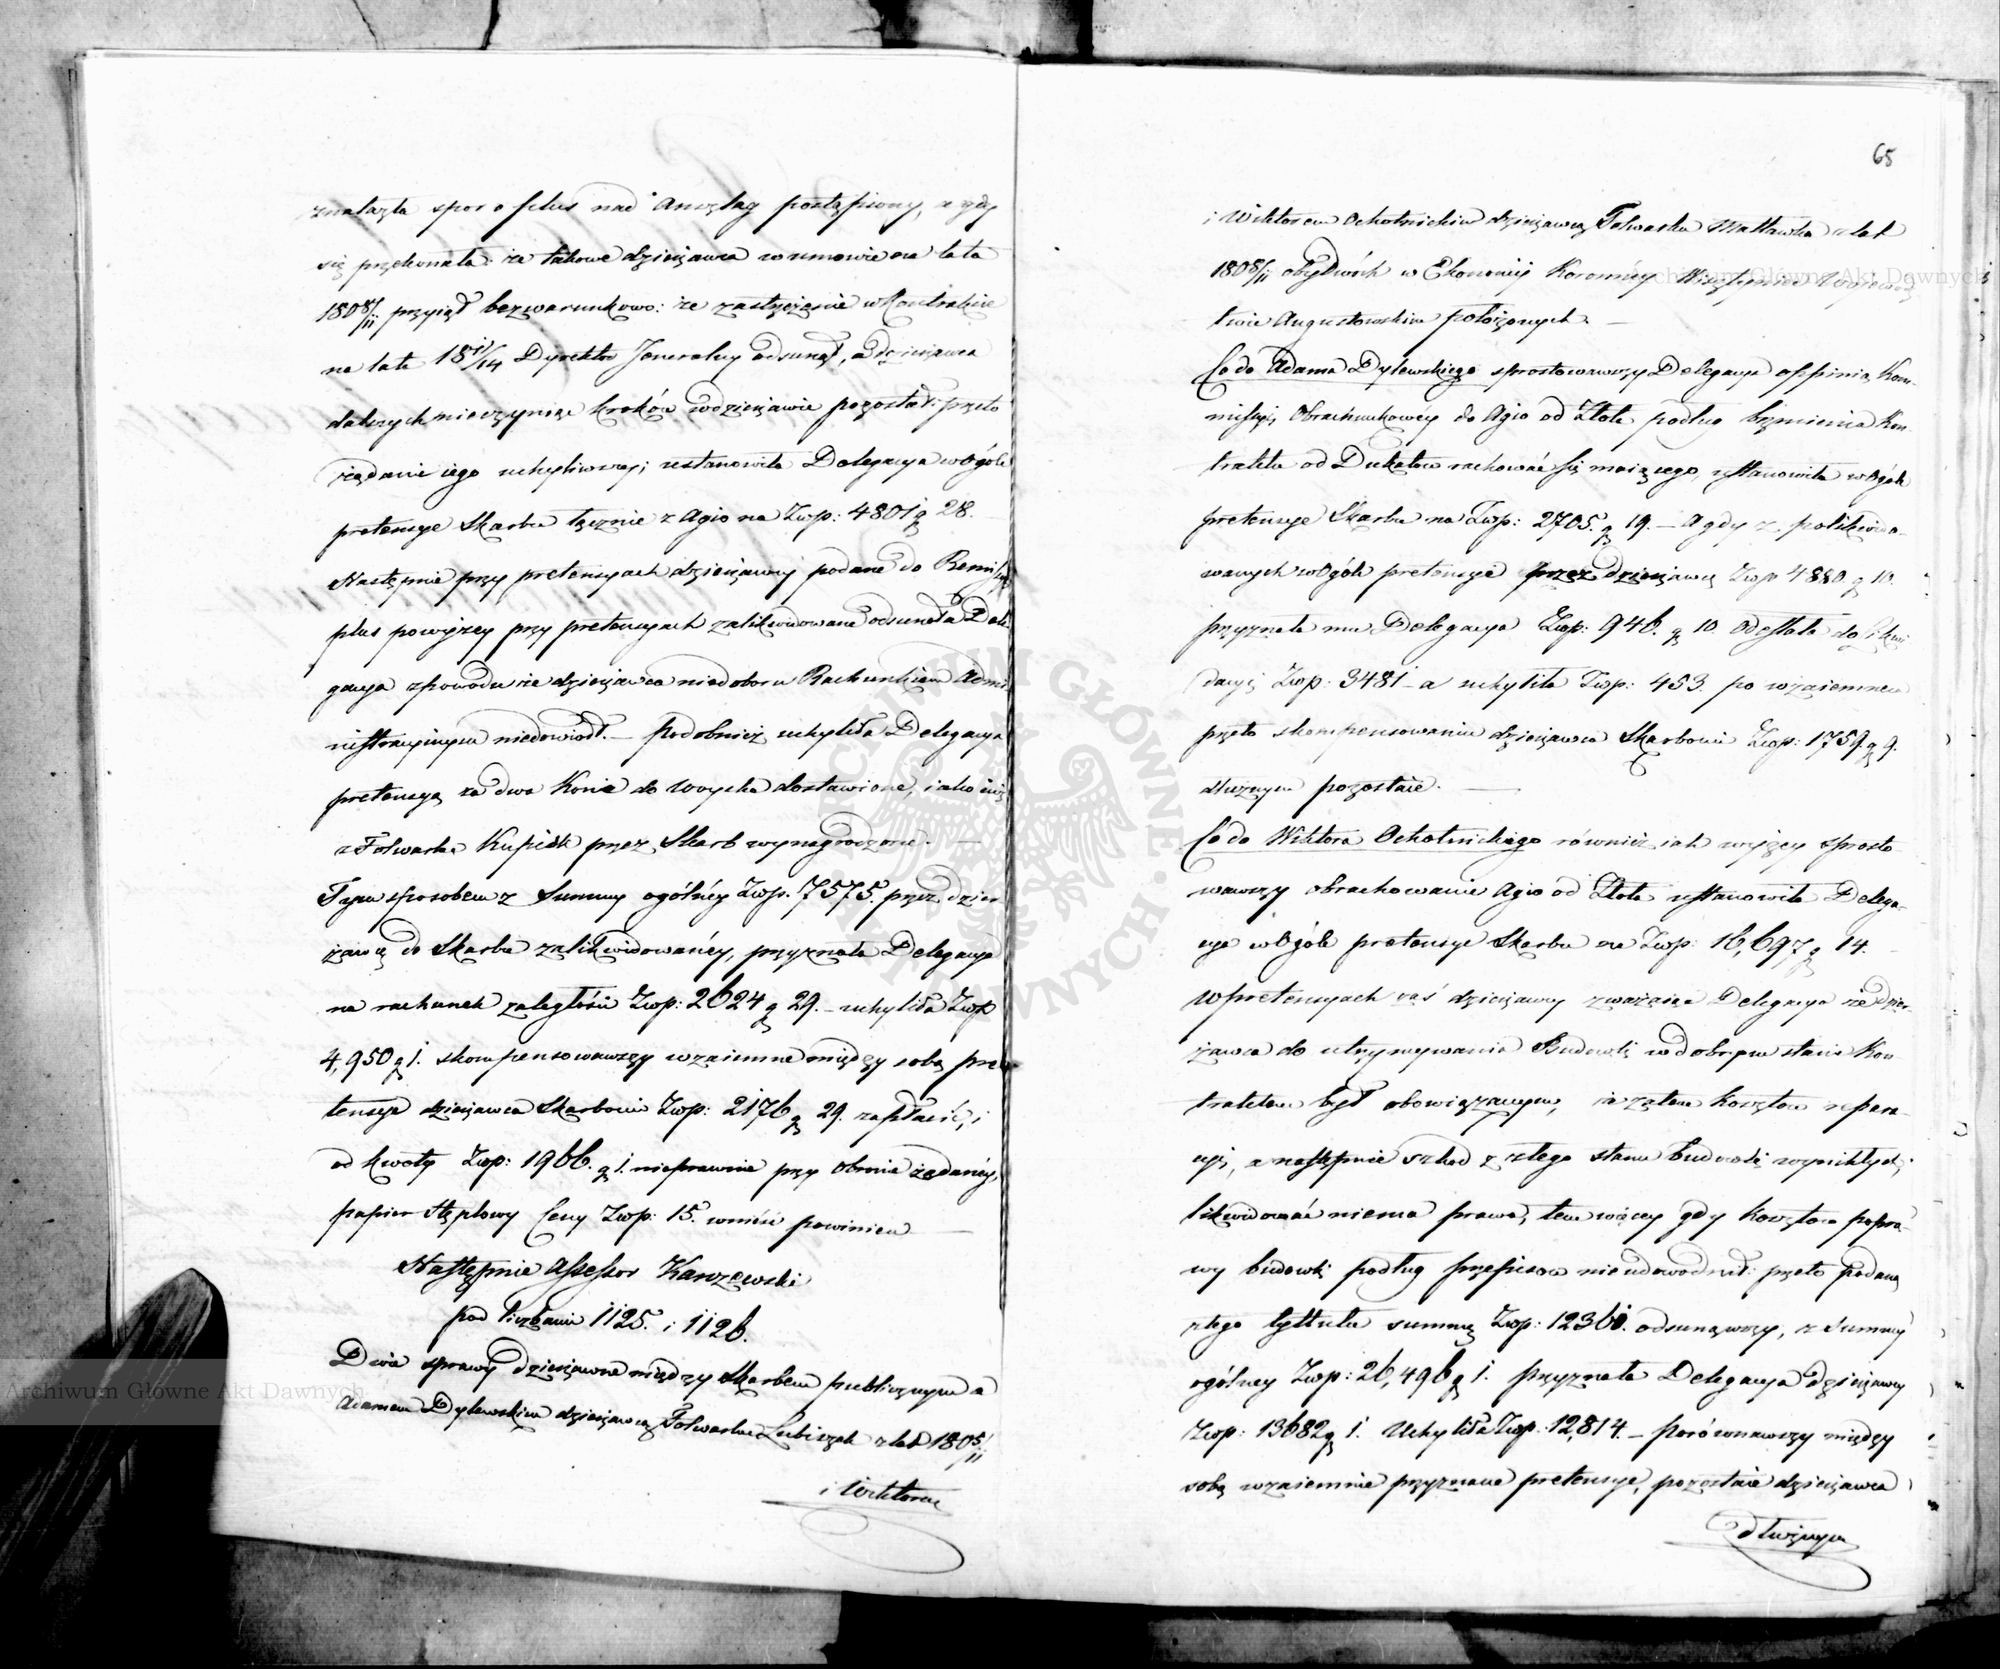 znalazła spor o plus nad Anszlag postąpiony, a gdy
się przekonała: że takowe dzierżawca w umowie na lata
1808/11 przyjął bezwarunkowo: że zastrzeżenie w Kontrakcie
na lata 1811/14 Dyrektor Jeneralny odsunął, a dzierżawca
dalszych nieczyniąc kroków w dzierżawie pozostał: przeto
żądanie iego uchyliwszy; ustanowiła Delegacya w Ogóle
pretensye Skarbu łącznie z Agio na Zwp: 4801 g 28.
Następnie przy pretensyach dzierżawcy podane do Remissyi
plus powyższy przy pretensyach zalikwidowane odsunęła Dele
gacya z powodu że dzierżawca niedoboru Rachunkiem Admi
nistracyinym niedowiódł. — Podobnież uchyliła Delegacya
pretensyą za dwa Konie do woyska dostawione, iako iuż
z Folwarku Kupisk przez Skarb wynagrodzone. —
Tym sposobem z Summy ogólnéy Zwp. 7575. przez dzier
żawcę do Skarbu zalikwidowanéy, przyznała Delegacya
na rachunek zaległości Zwp: 2624 g 29. — uchyliła Zwp
4,950 g 1. skompensowawszy wzaiemne między sobą pre
tensye dzierżawca Skarbowi Zwp: 2176 g 29. zapłacić, i
od kwoty Zwp: 1966. g 1. nieprawnie przy obronie żądanéy,
papier stęplowy Ceny Zwp: 15. wnieść powinien —
Następnie Assessor Karczewski
pod liczbami 1125. i 1126.
Dwie sprawy dzierżawne między Skarbem publicznym a
Adamem Dylewskim dzierżawcą Folwarku Lubiszek z lat 1805/11
i Wiktorem
65
i Wiktorem Ochotnickim dzierżawcą Folwarku Maltawka z lat
1808/11 obydwóch w Ekonomii Koronnéy Wisztyniec Wojewódz
twie Augustowskim położonych. —
Co do Adama Dylewskiego sprostowawszy Delegacya oppinią Kom-
missyi Obrachunkowey do Agio od Złota podług brzmienia Kon-
traktu od Dukatów rachować się maiącego, ustanowiła w Ogóle
pretensye Skarbu na Zwp: 2705. g 19. — A gdy z polikwido-
wanych w Ogóle pretensye przez dzierżawcę Zwp 4880. g 10.
przyznała mu Delegacya Zwp: 946. g 10. Odesłała do Likwi
dacyi Zwp: 3481 — a uchyliła Zwp: 453. po wzaiemnem
przeto skompensowaniu dzierżawca Skarbowi Zwp: 1759 g 9.
dłużnym pozostaie. —
Co do Wiktora Ochotnickiego również iak wyżey sprosto
wawszy obrachowanie Agio od Złota ustanowiła Delega-
cya w Ogóle pretensye Skarbu na Zwp: 16,697 g 14. —
W pretensyach zaś dzierżawcy zważaiąc Delegacya że dzier-
żawca do utrzymywania Budowli w dobrym stanie Kon-
traktem był obowiązanym, że zatem kosztów repara-
cyi, a następnie szkód z złego stanu budowli wynikłych,
likwidować niema prawa, tem więcey gdy kosztów popra-
wy budowli podług przepisów nieudowodnił: przeto podaną
z tego tytułu summę Zwp: 12360. odsunąwszy, z Summy
ogólney Zwp: 26,496 g 1. przyznała Delegacya dzierżawcy
Zwp: 13682 g 1. Uchyliła Zwp: 12,814. — porównawszy między
sobą wzaiemnie przyznane pretensye, pozostaie dzierżawca
dłużnym